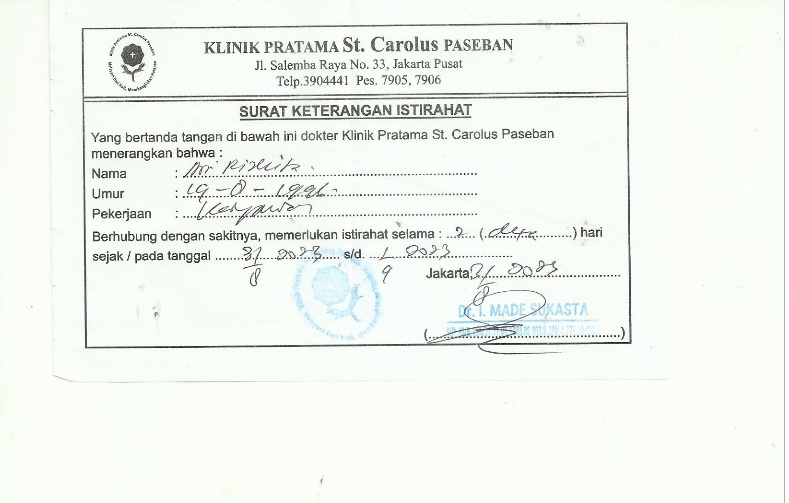 KLINIK PRATAMA St. Carolus PASEBAN
Jl. Salemba Raya No. 33, Jakarta Pusat
Telp.3904441 Pes. 7905, 7906
SURAT KETERANGAN ISTIRAHAT
Yang bertanda tangan di bawah ini dokter Klinik Pratama St. Carolus Paseban
menerangkan bahwa :
Nama :
Umur : 19-8-1996
Pekerjaan : Karyawan
Berhubung dengan sakitnya, memerlukan istirahat selama : 2 (dua) hari
sejak / pada tanggal 31/8 2023 s/d. 1/9 2023
Jakarta 31/8 2023
Dr. I. MADE SUKASTA